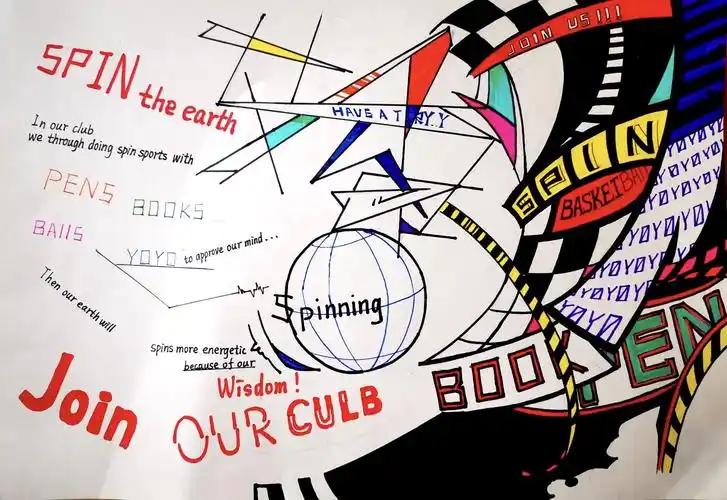 SPIN the earth
In our club
we through doing spin sports with
PENS BOOKS
BAllS YOYO to approve our mind...
Then our earth will
Spinning
spins more energetic
because of our
Wisdom!
Join OUR CULB
HAVE A T
JOIN US!!!
SPIN
BASKETBALL
YOYOYOYO
BOOK
PEN